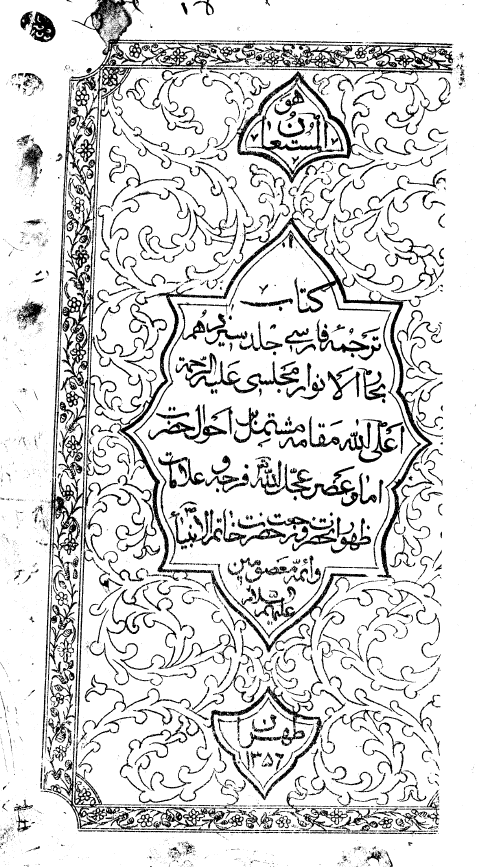 هو
المستعان
کتاب
ترجمهٔ فارسی جلد سیزدهم
بحار الانوار مجلسی علیه الرحمة
اعلی الله مقامه مشتمل بر احوال حضرت
امام عصر عجل الله فرجه و علامات
ظهور آنحضرت و رجعت حضرت خاتم الانبیاء
وائمه معصومین
علیهم السلام
طهران